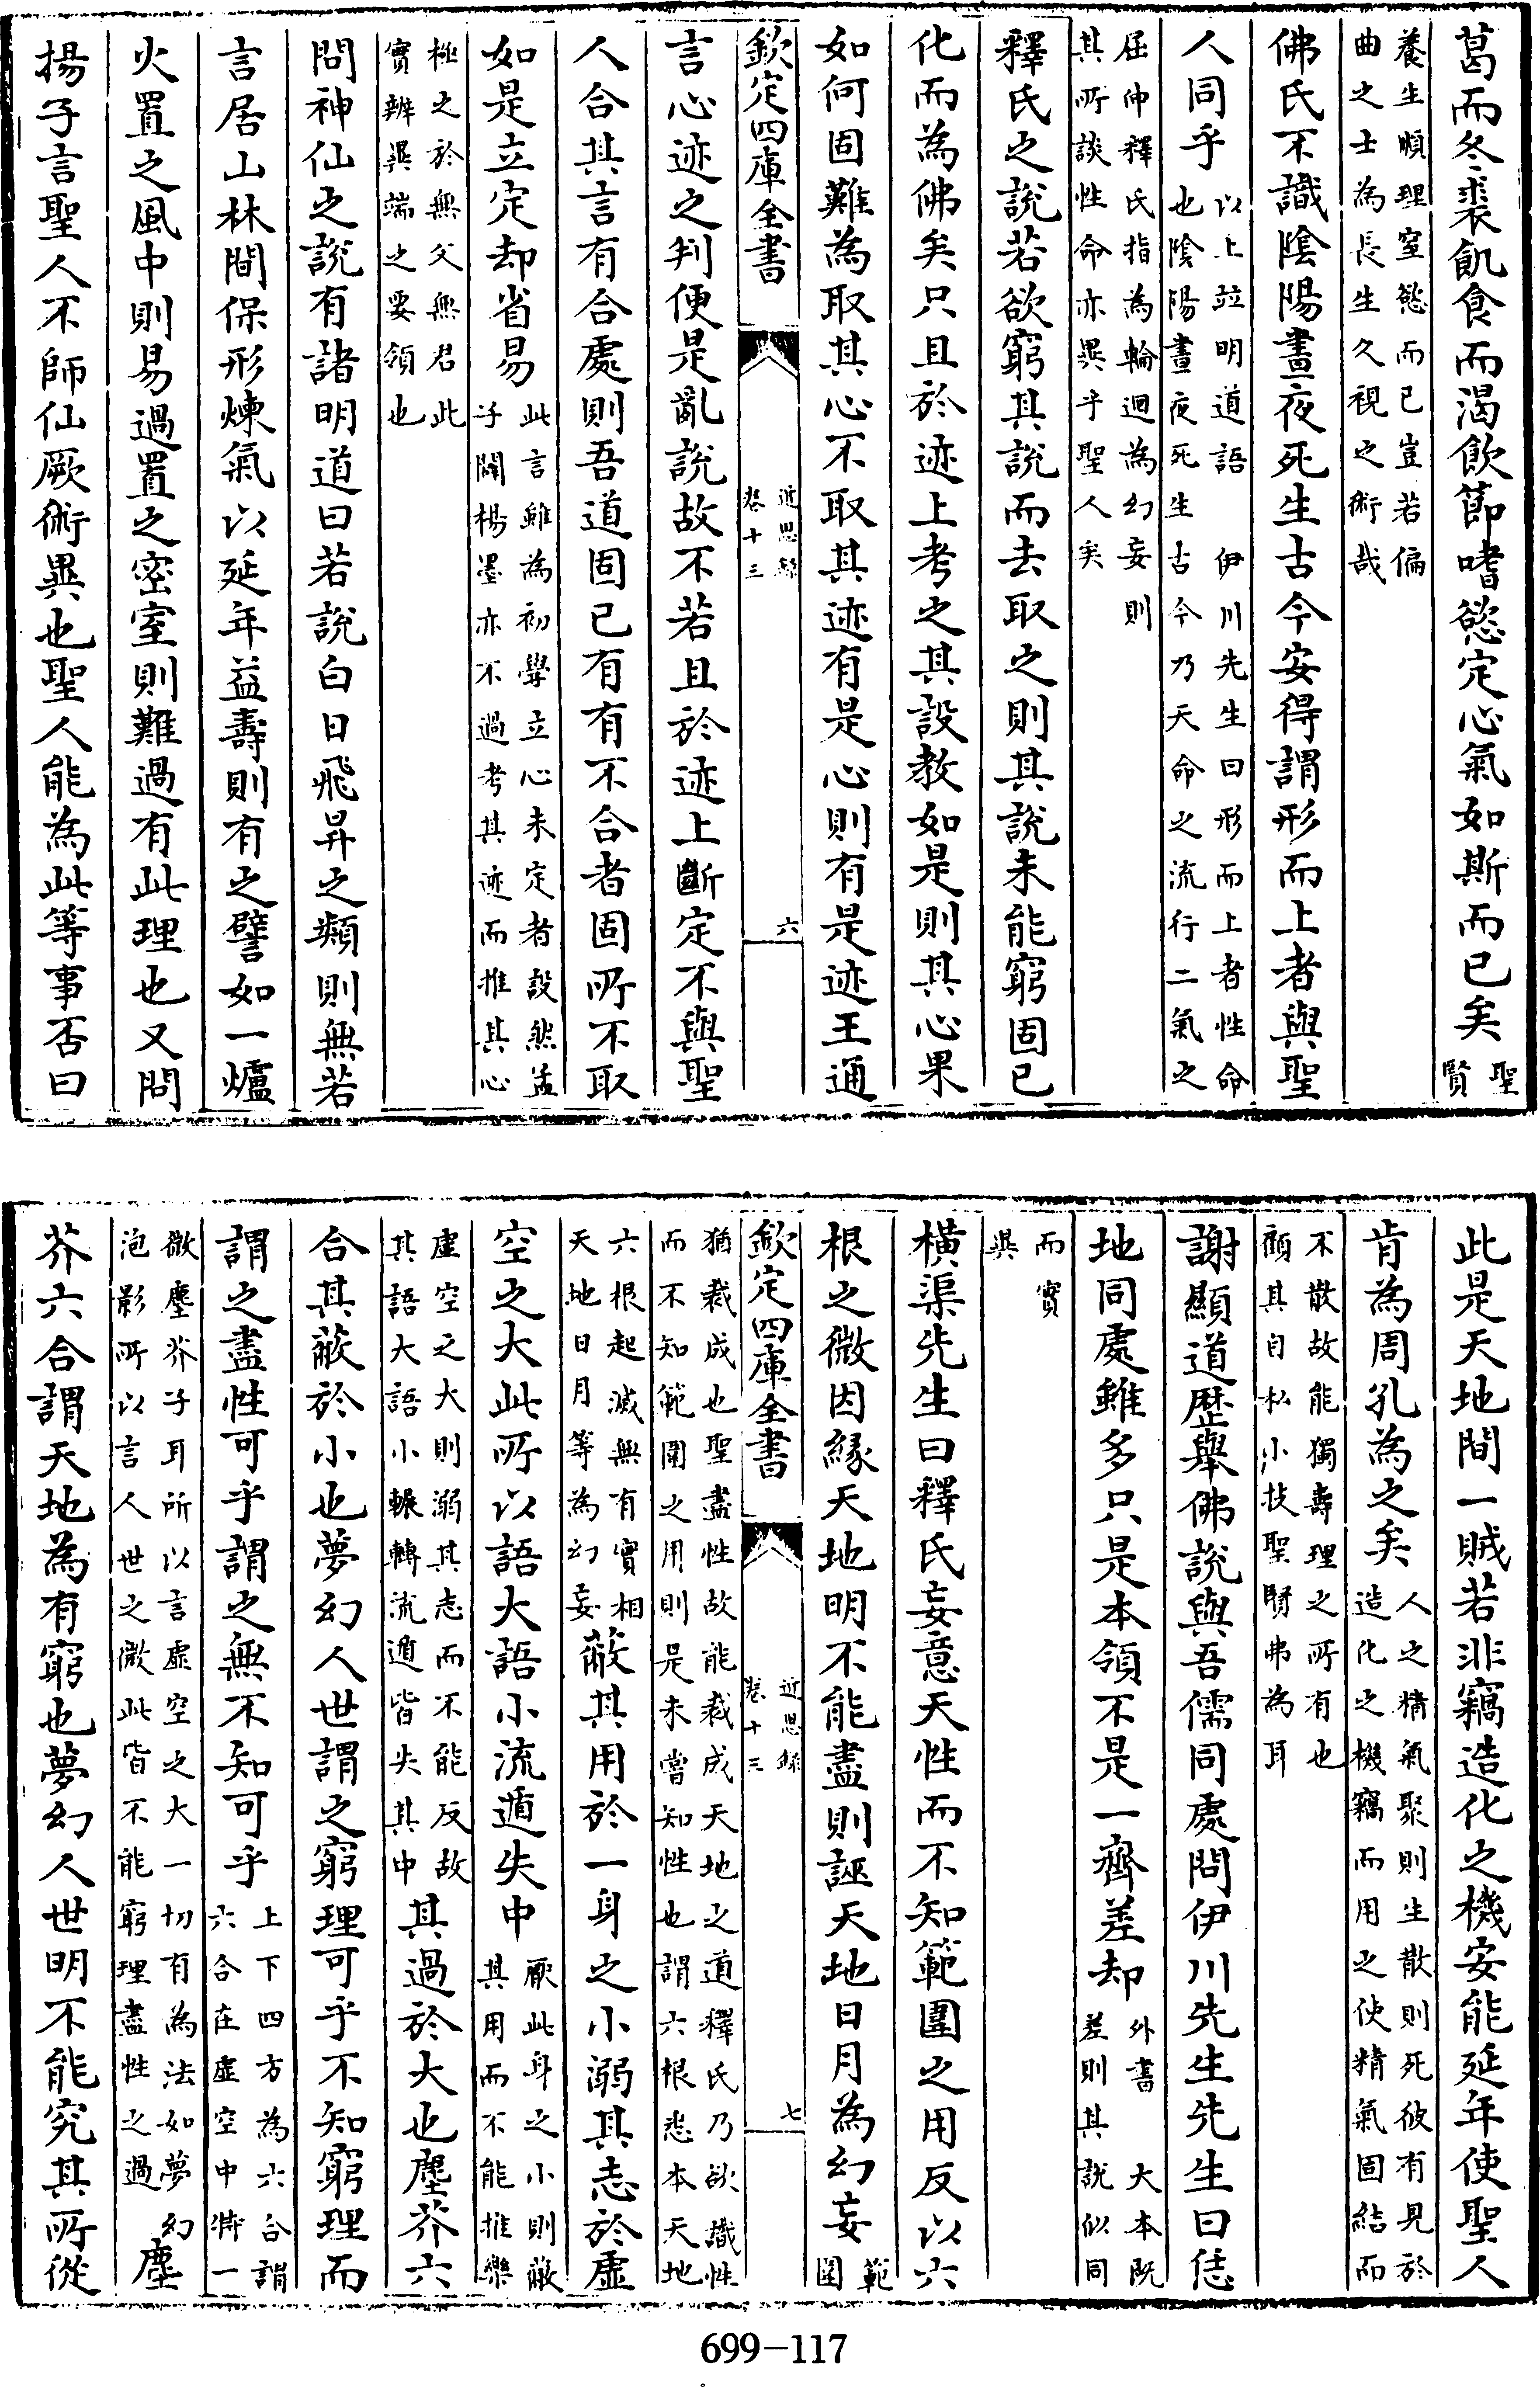 葛而冬裘飢食而渴飲節嗜慾定心氣如斯而已矣聖賢
養生順理窒慾而已豈若偏
曲之士為長生久視之術哉
佛氏不識陰陽晝夜死生古今安得謂形而上者與聖
人同乎以上竝明道語 伊川先生曰形而上者性命
也陰陽晝夜死生古今乃天命之流行二氣之
屈伸釋氏指為輪迴為幻妄則
其所談性命亦異乎聖人矣
釋氏之說若欲窮其說而去取之則其說未能窮固已
化而為佛矣只且於迹上考之其設教如是則其心果
如何固難為取其心不取其迹有是心則有是迹王通
欽定四庫全書
近思錄
卷十三
六
言心迹之判便是亂說故不若且於迹上斷定不與聖
人合其言有合處則吾道固已有有不合者固所不取
如是立定却省易此言雖為初學立心未定者設然孟
子闢楊墨亦不過考其迹而推其心
極之於無父無君此
實辨異端之要領也
問神仙之說有諸明道曰若說白日飛昇之類則無若
言居山林間保形煉氣以延年益壽則有之譬如一爐
火置之風中則易過置之密室則難過有此理也又問
揚子言聖人不師仙厥術異也聖人能為此等事否曰
此是天地間一賊若非竊造化之機安能延年使聖人
肯為周孔為之矣人之精氣聚則生散則死彼有見於
造化之機竊而用之使精氣固結而
不散故能獨壽理之所有也
顧其自私小技聖賢弗為耳
謝顯道歷舉佛說與吾儒同處問伊川先生先生曰恁
地同處雖多只是本領不是一齊差却外書 大本既
差則其說似同
而實
異
橫渠先生曰釋氏妄意天性而不知範圍之用反以六
根之微因緣天地明不能盡則誣天地日月為幻妄範圍
欽定四庫全書
近思錄
卷十三
七
猶裁成也聖盡性故能裁成天地之道釋氏乃欲識性
而不知範圍之用則是未嘗知性也謂六根悉本天地
六根起滅無有實相
天地日月等為幻妄蔽其用於一身之小溺其志於虛
空之大此所以語大語小流遁失中厥此身之小則蔽
其用而不能推樂
虛空之大則溺其志而不能反故
其語大語小輾轉流遁皆失其中其過於大也塵芥六
合其蔽於小也夢幻人世謂之窮理可乎不知窮理而
謂之盡性可乎謂之無不知可乎上下四方為六合謂
六合在虛空中特一
微塵芥子耳所以言虛空之大一切有為法如夢幻
泡影所以言人世之微此皆不能窮理盡性之過塵
芥六合謂天地為有窮也夢幻人世明不能究其所從
699-117